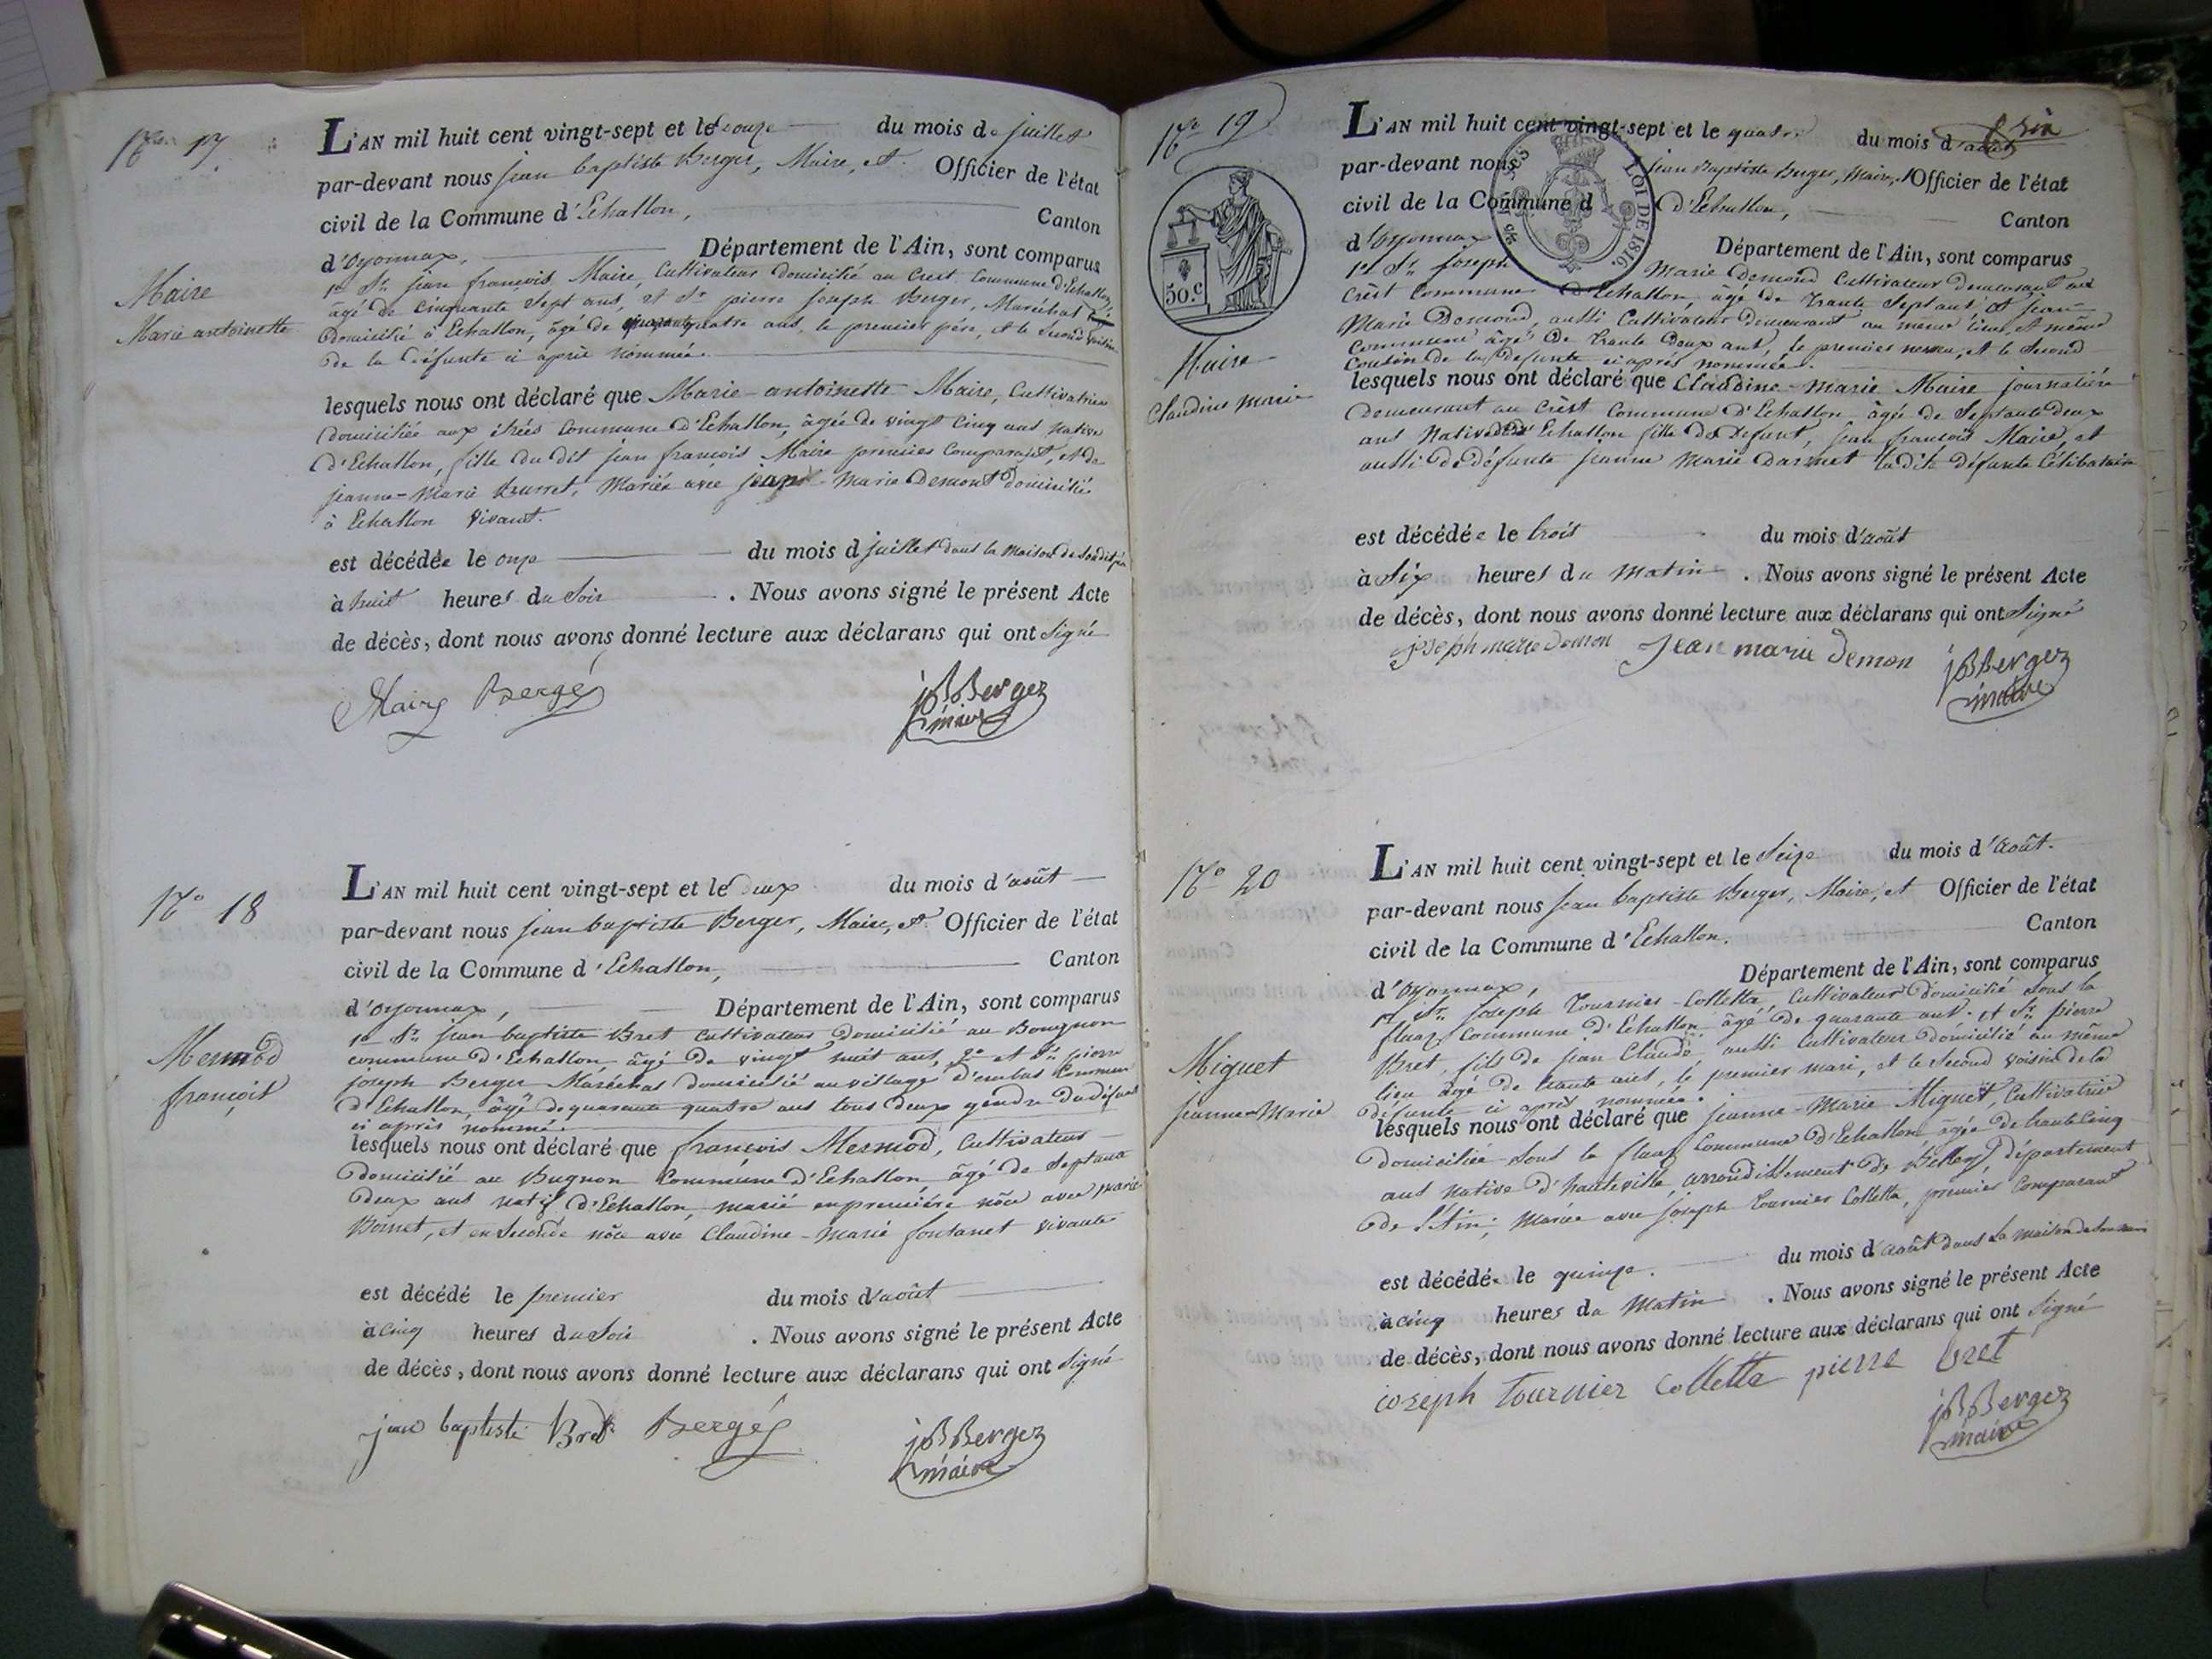 N° 17
L'AN mil huit cent vingt-sept et le douze du mois de juillet
par-devant nous jean baptiste Berger, Maire, et Officier de l'état
civil de la Commune d'Echallon, Canton
d'Oyonnax, Département de l'Ain, sont comparus
Maire
Marie antoinette
1er Sr. jean françois Maire, Cultivateur domicilié au Crest Commune d'Echallon
âgé de cinquante sept ans, et Sr pierre joseph Berger, Maréchal
domicilié à Echallon, âgé de quarante quatre ans, le premier père, et le second voisin
de la défunte ci après nommée.
lesquels nous ont déclaré que Marie-antoinette Maire, Cultivatrice
domiciliée aux Commune d'Echallon, âgée de vingt cinq ans native
d'Echallon, fille du dit jean françois Maire premier Comparant, et de
jeanne-Marie Burret, Mariée avec jean-Marie Demont domicilié
à Echallon vivant.
est décédée le onze du mois d juillet dans la maison de son dit père
à huit heures du Soir . Nous avons signé le présent Acte
de décès, dont nous avons donné lecture aux déclarans qui ont signé
Maire Bergé jB Berger
maire
N° 18
L'AN mil huit cent vingt-sept et le deux du mois d'août
par-devant nous jean baptiste Berger, Maire, et Officier de l'état
civil de la Commune d'Echallon, Canton
d'Oyonnax, Département de l'Ain, sont comparus
Mermod
françois
1er Sr. jean baptiste Bret cultivateur domicilié au Bougnon
commune d'Echallon, âgé de vingt huit ans, 2e et Sr. pierre
joseph Berger Maréchal domicilié au village d'embas Commune
d'Echallon, âgé de quarante quatre ans tous deux gendre du défunt
ci après nommé.
lesquels nous ont déclaré que françois Mermod, Cultivateur
domicilié au Bugnon Commune d'Echallon, âgé de septante
deux ans natif d'Echallon, marié en première nôce avec marie
, et en seconde nôce avec Claudine-Marie fontanet vivante
est décédé le premier du mois d'août
à cinq heures du Soir . Nous avons signé le présent Acte
de décès, dont nous avons donné lecture aux déclarans qui ont signé
jean baptiste Bret Bergé jB Berger
maire
N° 19
L'AN mil huit cent vingt-sept et le quatre du mois d'août
par-devant nous jean Baptiste Berger, Maire, et Officier de l'état
civil de la Commune d d'Echallon, Canton
d'Oyonnax Département de l'Ain, sont comparus
LOI DE 1816.
50.c
Maire
Claudine Marie
1er Sr. joseph Marie Demond Cultivateur demeurant au
Crêt Commune d'Echallon, âgé de trante Sept ans, et jean-
Marie Demond, aussi Cultivateur demeurant au même lieu, et même
commune âgé de trante deux ans, le premier neveu, et le Second
Cousin de la défunte ci après nommée.
lesquels nous ont déclaré que Claudine-Marie Maire journalière
demeurant au Crêst Commune d'Echallon âgée de Septante deux
ans Native d'Echallon fille de défunt, jean françois Maire, et
aussi de défunte jeanne Marie ladite défunte Célibataire
est décédée le trois du mois d'août
à six heures du Matin . Nous avons signé le présent Acte
de décès, dont nous avons donné lecture aux déclarans qui ont Signé
joseph marie Demon Jean marie Demon jB Berger
maire
N° 20
L'AN mil huit cent vingt-sept et le Seize du mois d'août.
par-devant nous jean baptiste Berger, Maire, et Officier de l'état
civil de la Commune d'Echallon. Canton
d'Oyonnax, Département de l'Ain, sont comparus
Miguet
jeanne-Marie
1er Sr. joseph Tournier-Colletta, Cultivateur domicilié sous la
fluaz Commune d'Echallon âgé de quarante ans. et Sr. pierre
Bret, fils de jean Claude aussi Cultivateur domicilié au même
lieu âgé de trante ans, le premier mari, et le Second voisin de la
défunte ci après nommée.
lesquels nous ont déclaré que jeanne-Marie Miguet, Cultivatrice
domiciliée sous la fluaz Commune d'Echallon âgée de trante Cinq
ans native d'hauteville, arrondissement de Belley, département
de l'Ain; Mariée avec joseph Tournier Colletta, premier Comparant
est décédée le quinze. du mois d'août dans la maison de son mari
à cinq heures du Matin . Nous avons signé le présent Acte
de décès, dont nous avons donné lecture aux déclarans qui ont Signé
joseph Tournier Colletta pierre bret
jB Berger
maire